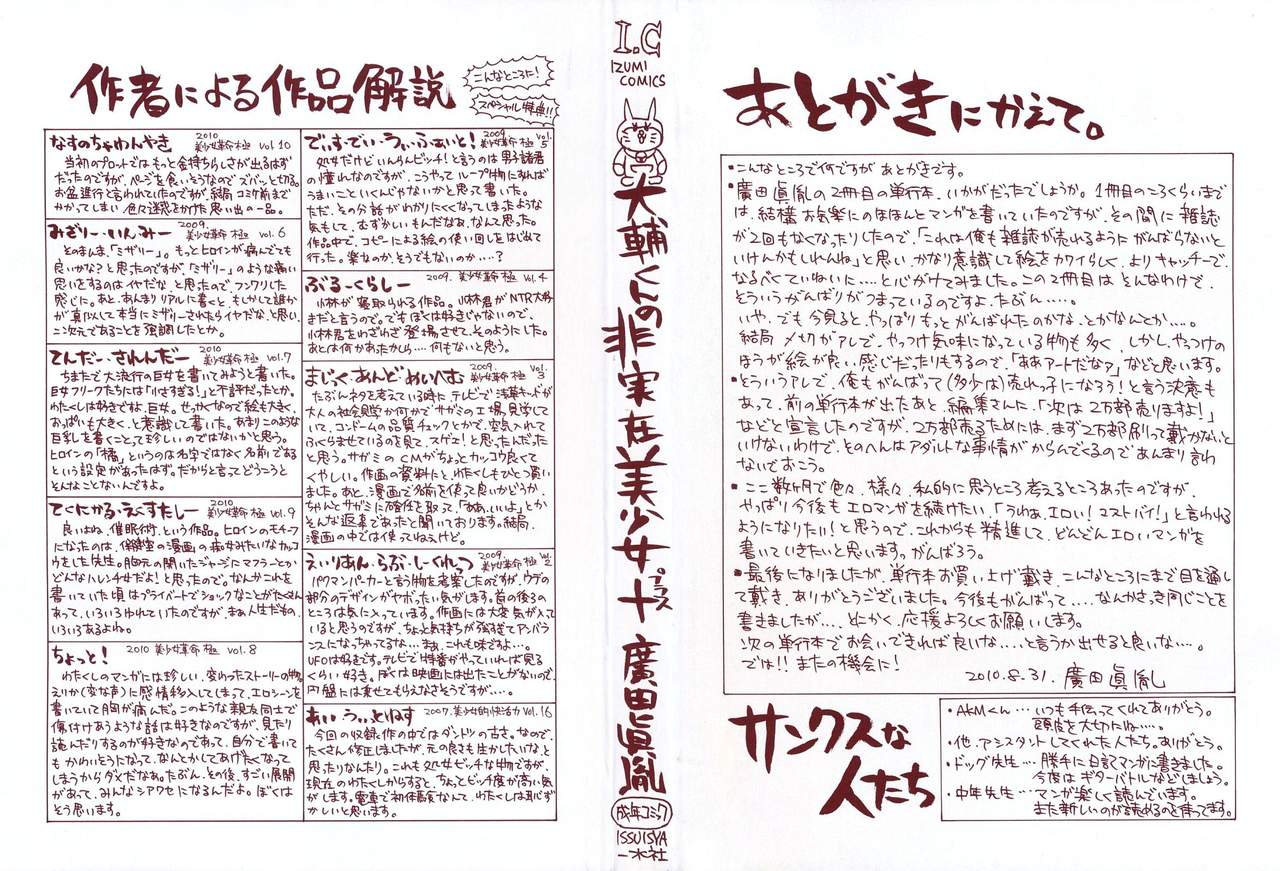 作者による作品解説
こんなところに!
スペシャル特典!!
なすのちゃわんやき 2010 美少女革命 極 vol.10
当初のプロットではもっと金持ちらしさが出るはず
だったのですが、ページを食いそうなのでズバッと切る。
お盆進行と言われていたのですが、結局コミケ前まで
かかってしまい、色々迷惑をかけた思い出の一品。
みざりー・いんみー 2009. 美少女革命 極 vol.6
そのまんま、「ミザリー」。もっとヒロインが病んでても
良いかな?と思ったのですが、「ミザリー」のような痛い
思いをするのはイヤだな、と思ったので、フンワリした
感じに。あと、あんまりリアルに書くと、もしかして誰か
が真似して本当にミザリーされたらイヤだな、と思い、
二次元であることを強調したとか。
てんだー・されんだー 2010 美少女革命 極 vol.7
ちまたで大流行の巨女を書いてみようと書いた。
巨女フリークたちには「小さすぎる!」と不評だったとか。
わたくしは好きですよ、巨女。せっかくなので絵も大きく、
おっぱいも大きく、と意識して書いた。あまりこのような
巨乳を書くことって珍しいのではないかと思う。
ヒロインの「橘」というのは名字ではなく名前である
という設定があったはず。だからと言ってどうこうと
そんなことないんですよ。
てくにかる・えくすたしー 2010 美少女革命 極 vol.9
良いよね、催眠術、という作品。ヒロインのモチーフ
になったのは、保健室の漫画の痴女みたいなカッコ
ウをした先生。胸元の開いたジャージにマフラーとか
どんなハレンチせだよ!と思ったので。なんかこれを
書いていた頃はプライベートでショックなことがたくさん
あって、いろいろゆれていたのですが、まぁ人生だもの、
いろいろあるよね。
ちょっと! 2010 美少女革命 極 vol.8
わたくしのマンガには珍しい、変わったストーリーの物。
えりか(変な声)に感情移入してしまって、エロシーンを
書いていて胸が痛んだ。このような親友同士で
傷付けあうような話は好きなのですが、見たり
読んだりするのが好きなのであって、自分で書いて
もかわいそうになって、なんとかしてあげたくなって
しまうからダメだなぁ。たぶん、その後、すごい展開
があって、みんなシアワセになるんだよ。ぼくは
そう思います。
でぃすでぃ・うぃ・ふぁいと! 2009. 美少女革命 極 vol.5
処女だけどいんらんビッチ!と言うのは男子諸君
の憧れなのですが、こうやってループ物にすれば
うまいこといくんじゃないかと思って書いた。
ただ、その分話がわかりにくくなってしまったような
気もして、むずかしいもんだなぁ、なんて思った。
作品中で、コピーによる絵の使い回しをはじめて
行った。楽なのか、そうでもないのか・・・・?
ぶるーくらしー 2009. 美少女革命 極 vol.4
小林が寝取られる作品。小林君がNTR大好
きだと言うので。でもぼくは好きじゃないので、
小林君をわざわざ登場させて、そのようにした。
あとは何かあったかしら・・・・何もないと思う。
まじっく・あんど・めいへむ 2009. 美少女革命 極 vol.3
たぶんネタを考えている時に、テレビで浅草キッドが
大人の社会見学か何かでサガミの工場見学して
いて、コンドームの品質チェックとかで、空気入れて
ふくらませているのを見て、スゲェ!と思ったんだった
と思う。サガミのCMがちょっとカッコウ良くて
くやしい。作画の資料だと、わたくしもひとつ買い
ました。あと、漫画で名前を使って良いかどうか、
ちゃんとサガミに確佐を取って、「ああ、いいよ」とか
そんな返事であったと聞いております。結局、
漫画の中では使ってねぇけど。
えいりあん・らぶ・しーくれっつ 2009. 美少女革命 極 vol.2
パクマンパーカーと言う物を考案したのですが、ウデの
部分のデザインがヤボったい気がします。首の後3の
ところは気に入っています。作画には大変気が入って
いると思うのですが、ちょっと気持ちが強すぎてアンバラ
ンスになっちゃってるな・・・まぁ、これも味ですよ・・・。
UFOは好きです。テレビで特番がやっていれば見る
くらい好き。ぼくは映画には出たことがないので、
円盤には乗せてもらえなさそうですが・・・。
あい・うぃっとねす 2007. 美少女的快活力 vol.16
今回の収録作の中ではダントツの古さ。なので、
たくさん修正しましたが、元の良さも生かしたいな、と
思ったりなんたり。これも処女ビッチな物ですが、
現在のわたくしからすると、ちょっとビッチ度が高い気
がします。電車で初体験なんて、わたくしは恥ず
かしいと思います。
I.C
IZUMI
COMICS
大輔くんの非実在美少女十
プラス
廣田眞胤
成年コミック
ISSUISYA
一水社
あとがきにかえて。
・こんなところで何ですが、あとがきです。
・廣田眞胤の2冊目の単行本、いかがだったでしょうか。1冊目のころくらいまで
は、結構お気楽にのほほんとマンガを書いていたのですが、その間に雑誌
が2回もなくなったりしたので、「これは俺も雑誌が売れるようにがんばらないと
いけんかもしれんね」と思い、かなり意識して絵をカワイらしく、よりキャッチーで、
なるべくていねいに・・・・と心がけてみました。この2冊目はそんなわけで、
そういうがんばりがつまっているのですよ、たぶん・・・・・。
いや、でも今見ると、やっぱりもっとがんばれたのかな、とかなんとか・・・・。
結局〆切がアレで、やっつけ気味になっている物も多く、しかし、やっつけの
ほうが絵が良い感じだったりもするので、「ああアートだなぁ?」などと思います。
・とういうアレで、俺もがんばって(多少は)売れっ子になろう!と言う決意も
あって、前の単行本が出たあと、編集さんに、「次は2万部売りますよ!」
などと宣言したのですが、2万部売るためには、まず2万部刷って戴かないと
いけないわけで、そのへんはアダルトな事情がからんでくるのであんまり言わ
ないでおこう。
・ここ数ヶ月で色々、様々、私的に思うところ考えるところあったのですが、
やっぱり今後もエロマンガを続けたい、「うわぁ、エロい!コストバイ!」と言われる
ようになりたい!と思うので、これからも精進して、どんどんエロいマンガを
書いていきたいと思いますっ。がんばろう。
・最後になりましたが、単行本お買い上げ戴き、こんなところにまで目を通し
て戴き、ありがとうございました。今後もがんばって・・・・なんかさっき同じことを
書きましたが・・・、とにかく、応援よろしくお願いします。
次の単行本でお会いできれば良いな・・・と言うか出せると良いな・・・。
では!! またの機会に!
2010.8.31. 廣田眞胤
サンクスな
人たち
・AKMくん・・・いつも手伝ってくれてありがとう。
頭皮を大切にね・・・・。
・他、アシスタントしてくれた人たち。ありがとう。
・ドッグ先生・・・勝手に日記マンガに書きました。
今度はギターバトルなどしましょう。
・中年先生・・・マンガ楽しく読んでいます。
また新しいのが読めるのを待ってます。